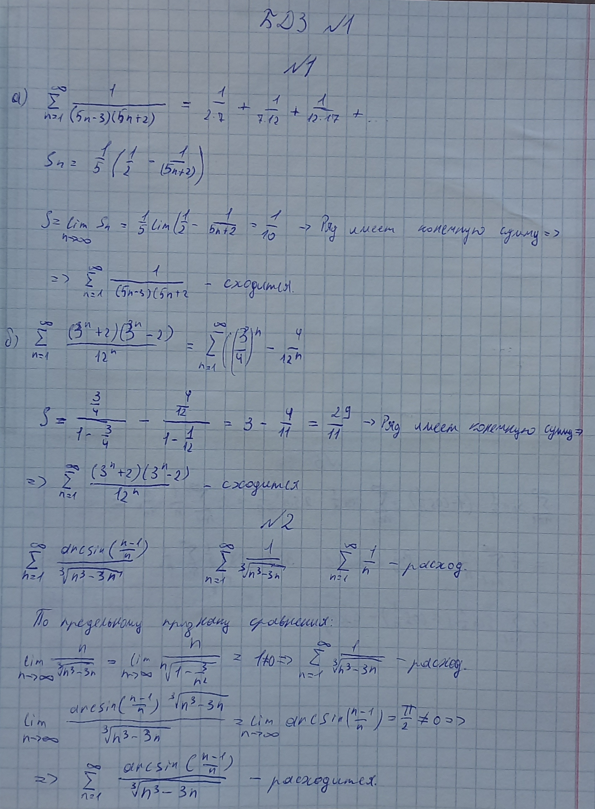 БДЗ №1
№1
а) ∑_{n=1}^{∞} 1/((5n-3)(5n+2)) = 1/(2·7) + 1/(7·12) + 1/(12·17) + ...
Sn = 1/5 (1/2 - 1/(5n+2))
S = lim_{n→∞} Sn = 1/5 lim(1/2 - 1/(5n+2) = 1/10 → Ряд имеет конечную сумму =>
=> ∑_{n=1}^{∞} 1/((5n-3)(5n+2 - сходится.
б) ∑_{n=1}^{∞} ((3^n+2)(3^n-2))/12^n = ∑_{n=1}^{∞} ((3/4)^n - 4/12^n
S = (3/4)/(1-3/4) - (4/12)/(1-1/12) = 3 - 4/11 = 29/11 → Ряд имеет конечную сумму =>
=> ∑_{n=1}^{∞} ((3^n+2)(3^n-2))/12^n - сходится
№2
∑_{n=1}^{∞} arcsin((n-1)/n)/∛(n³-3n) ∑_{n=1}^{∞} 1/∛(n³-3n) ∑_{n=1}^{∞} 1/n - расход.
По предельному признаку сравнения:
lim_{n→∞} n/∛(n³-3n) = lim_{n→∞} n/(n∛(1-3/n²)) = 1≠0 => ∑_{n=1}^{∞} 1/∛(n³-3n) - расход.
lim_{n→∞} (arcsin((n-1)/n) ∛(n³-3n))/∛(n³-3n) = lim_{n→∞} arcsin((n-1)/n) = π/2 ≠ 0 =>
=> ∑_{n=1}^{∞} arcsin((n-1)/n)/∛(n³-3n) - расходится.